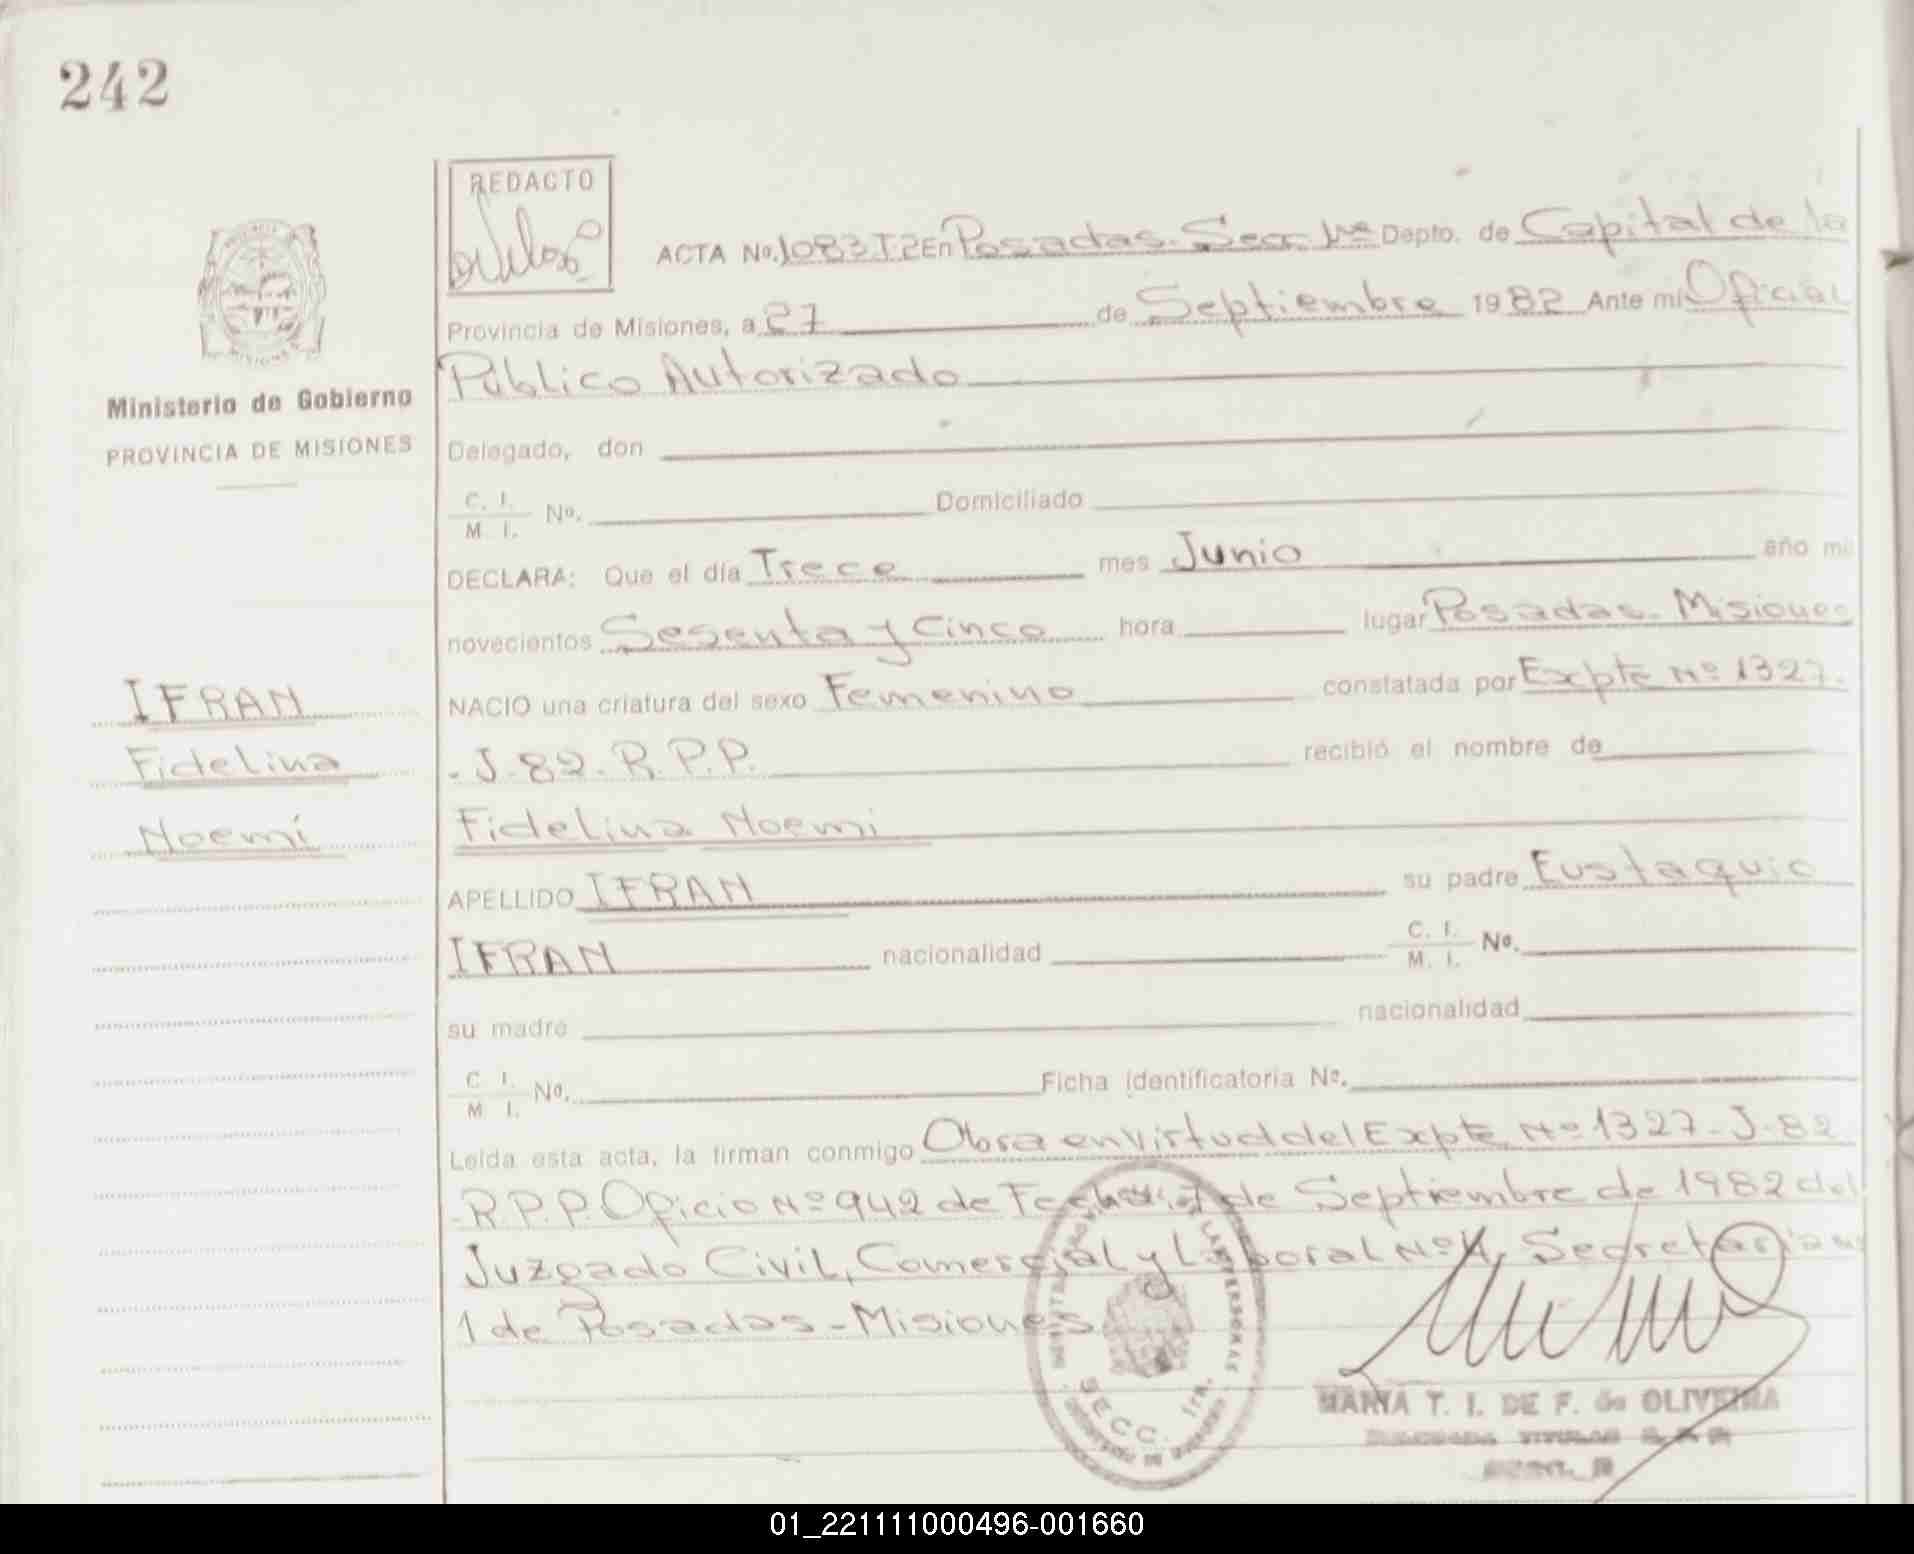 242
REDACTO
ACTA No. 1083 T2 En Posadas. Secc. 1ra Depto. de Capital de la
Provincia de Misiones, a 27 de Septiembre 1982 Ante mi Oficial
Público Autorizado
Ministerio de Gobierno
PROVINCIA DE MISIONES
Delegado, don
C. I.
M. I. No. Domiciliado
DECLARA: Que el día Trece mes Junio año mil
novecientos Sesenta y Cinco hora lugar Posadas - Misiones
IFRAN
Fidelina
Noemí
NACIO una criatura del sexo Femenino constatada por Expte Nº 1327.
- J-82. R.P.P. recibió el nombre de
Fidelina Noemi
APELLIDO IFRAN su padre Eustaquio
IFRAN nacionalidad C. I. M. I. No.
su madre nacionalidad
C. I.
M. I. No. Ficha identificatoria No.
Leída esta acta, la firman conmigo Obra en virtud del Expte Nº 1327-J-82
-R.P.P. Oficio Nº 942 de Fecha de Septiembre de 1982 del
Juzgado Civil, Comercial y Laboral Nº Secretaria
1 de Posadas - Misiones
SECC. 1ra.
MARIA T. I. DE F. de OLIVEIRA
01_221111000496-001660